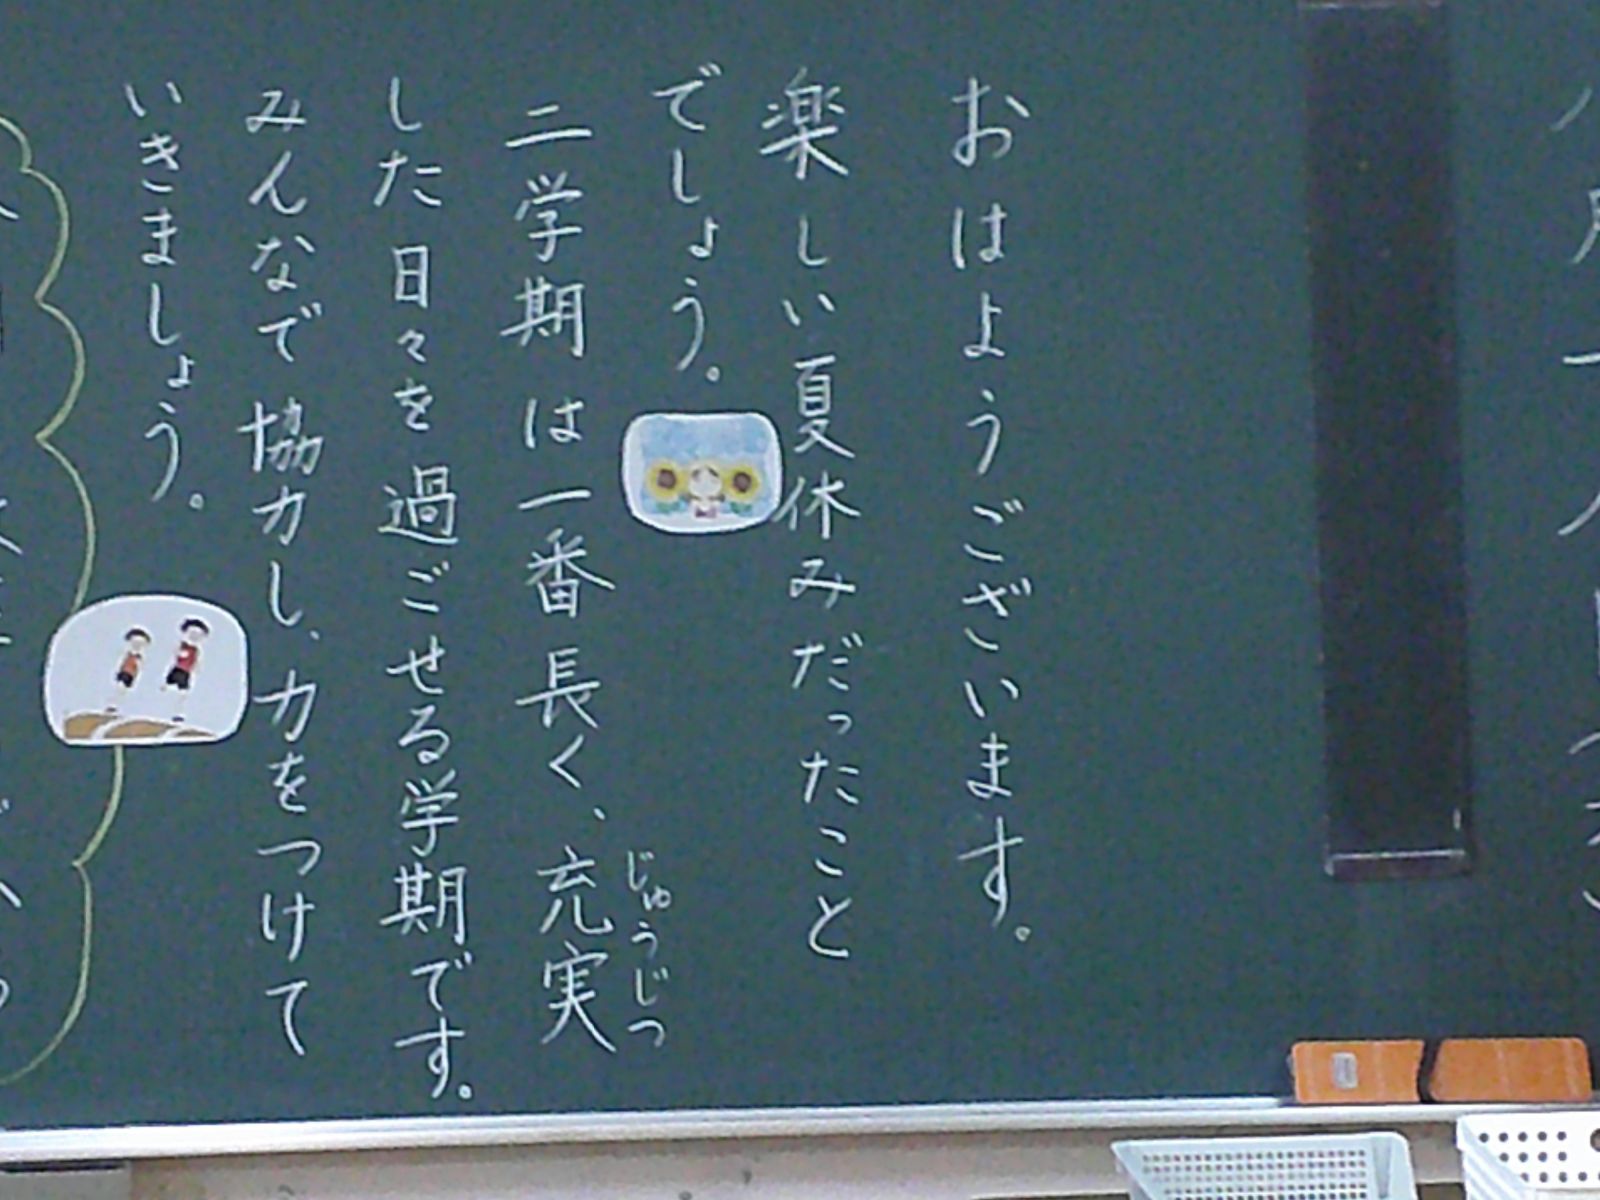 おはようございます。
楽しい夏休みだったこと
でしょう。
二学期は一番長く、充実
じゅうじつ
した日々を過ごせる学期です。
みんなで協力し、力をつけて
いきましょう。